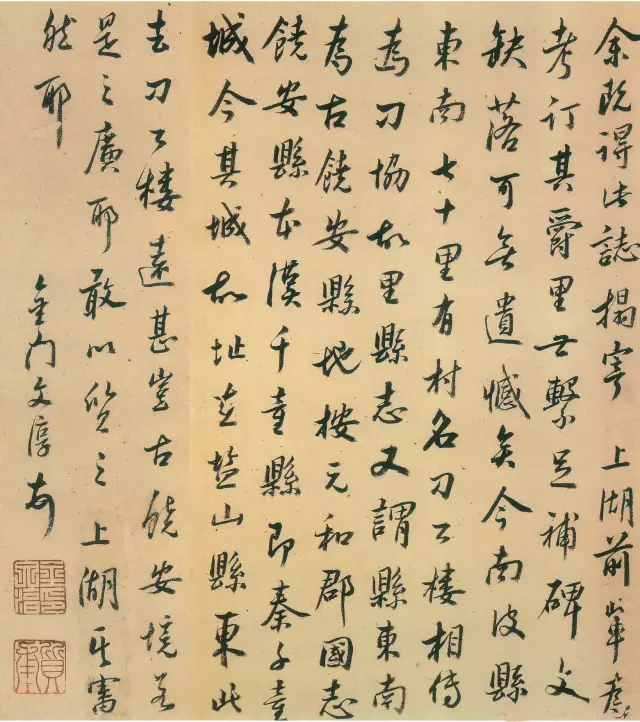 余既得此誌搨寄 上湖前輩為
考訂其爵里世繫足補碑文
缺落可無遺憾矣今南皮縣
東南七十里有村名刁公樓相傳
為刁協故里縣志又謂縣東南
為古饒安縣地按元和郡國志
饒安縣本漢千童縣即秦千童
城今其城故址在鹽山縣東此
去刁公樓遠甚豈古饒安境若
是之廣耶敢以質之上湖其審
然耶
金門文淳